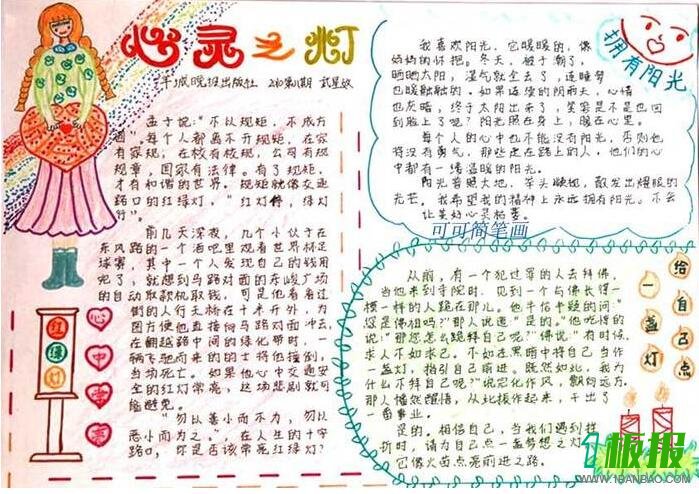 心灵之灯
拥有阳光
我喜欢阳光,它暖暖的,像
妈妈的怀抱。冬天,被子潮了,
晒晒太阳,湿气就全去了,连睡梦
也暖融融的。如果连续的阴雨天,心情
也灰暗,终于太阳出来了,笑容是不是也回
到脸上了呢?阳光照在身上,暖在心里。
每个人的心中也不能没有阳光,否则他
将没有勇气,那些走在路上的人,他们的心
中都有一缕温暖的阳光。
阳光普照大地,举头
散发出耀眼的
光芒。我希望我的精神上永远拥有阳光。不会
让美好心灵枯萎。
可可简笔画
孟子说:"不以规矩,不成方
圆",每个人都离不开规矩,在家
有家规,在校有校规,公司有规
规章,国家有法律。有了规矩,
才有和谐的世界。规矩就像交通
路口的红绿灯,"红灯停,绿灯
行"。
前几天深夜,几个小伙子在
东风路的一个酒吧里观看世界杯足
球赛,其中一个人发现自己的钱用
完了,就想到马路对面的东峻广场
的自动取款机取钱,可是他看看过
街的人行天桥在十米开外,为
图方便他直接向马路对面冲去,
在翻越路中间的绿化带时,一
辆飞驰而来的的士将他撞倒,
当场死亡。如果他心中交通安
全的红灯常亮,这场悲剧就可
能避免。
"勿以善小而不为,勿以
恶小而为之",在人生的十字
路口,你是否该常亮红绿灯?
红
绿
灯
心
中
常
亮
给
自
己
点
一
盏
灯
从前,有一个犯过罪的人去拜佛,
当他来到寺院时,见到一个与佛长得一
模一样的人跪在那儿。他千恰千疑的问"
您是佛祖吗?"那人说道"是的。"他吃惊的
说"那您怎么跪拜自己呢?"佛说"有时候,
求人不如求己。不如在黑暗中将自己当作
一盏灯,指引自己前进。既然如此,我为
什么不拜自己呢?"说完化作风,飘向远方。
那人幡然醒悟,从此振作起来,干出了
一番事业。
是的,相信自己,当我们遇到挫
折时,请为自己点一盏梦想之灯
它像火苗点亮前进之路。
1板报
WWW.1BANBAO.COM